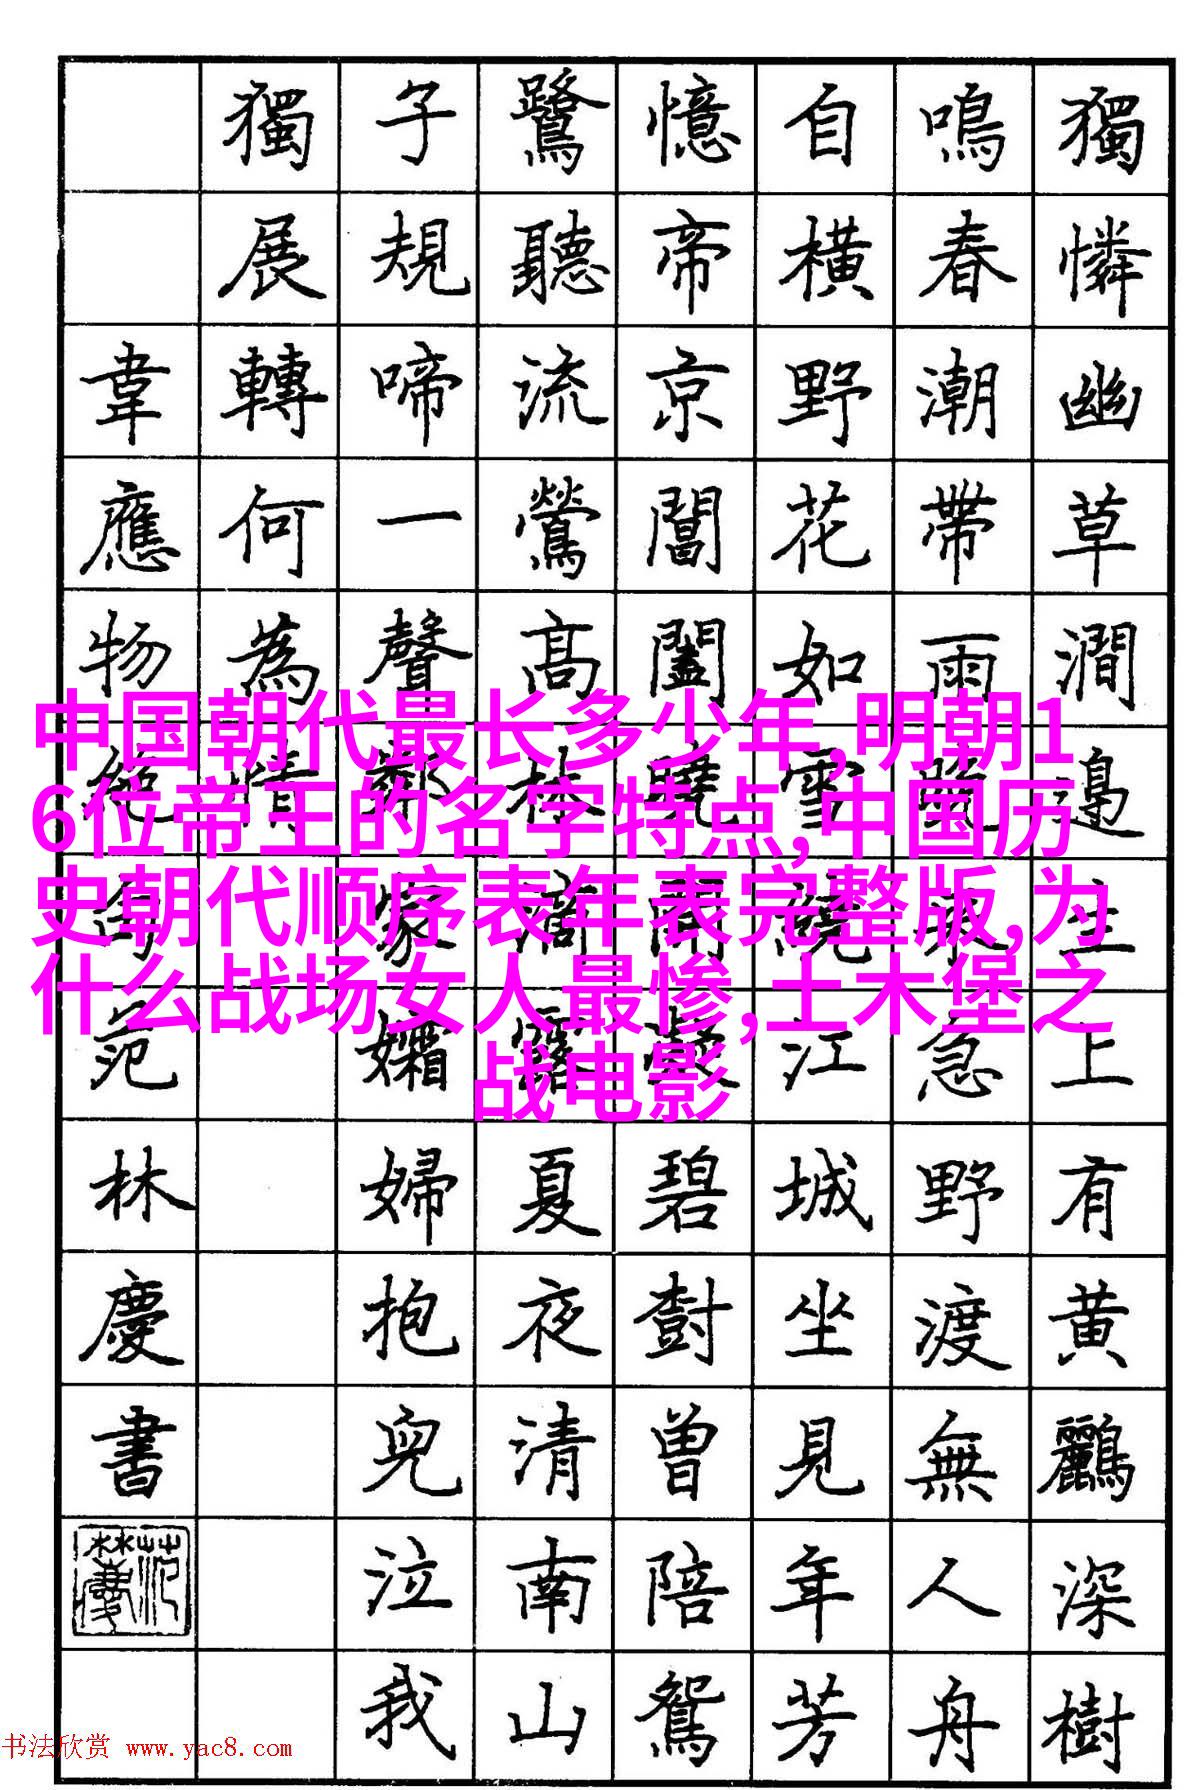 獨憐幽草澗邊生上有黄鸝深樹
鳴春潮帶雨晚來急野渡無人舟
自橫野花如雪繞江城坐見年芳
憶帝京閶闔曉開凝碧樹曾陪鴛
鷺聽流鶯高林滴露夏夜清南山
子規啼一聲鄰家孀婦抱兒泣我
獨展轉何為情
韋應物絕句范林慶書
中国朝代最长多少年,明朝1
6位帝王的名字特点,中国历
史朝代顺序表年表完整版,为
什么战场女人最惨,土木堡之
战电影
书法欣赏 www.yac8.com